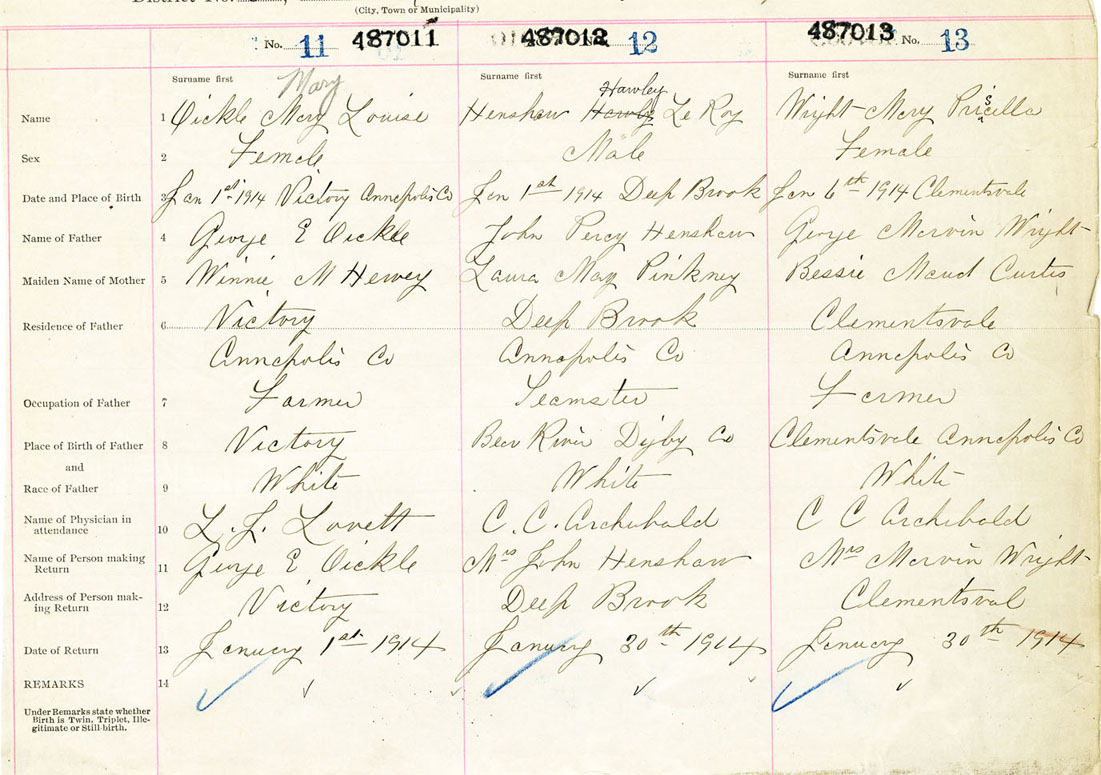 (City, Town or Municipality)
No. 11 487011 487012 No. 12 487013 No. 13
Surname first Surname first Surname first
Mary Hawley
Name 1 Oickle Mary Louise Henshaw Hawly LeRoy Wright Mary Pricilla
s
Sex 2 Female Male Female
Date and Place of Birth 3 Jan 1st 1914 Victory Annapolis Co Jan 1st 1914 Deep Brook Jan 6th 1914 Clementsvale
Name of Father 4 George E Oickle John Percy Henshaw George Mervin Wright
Maiden Name of Mother 5 Winnie M Hervey Laura May Pinkney Bessie Maud Curtis
Residence of Father 6 Victory Deep Brook Clementsvale
Annapolis Co Annapolis Co Annapolis Co
Occupation of Father 7 Farmer Teamster Farmer
Place of Birth of Father 8 Victory Bear River Digby Co Clementsvale Annapolis Co
and
Race of Father 9 White White White
Name of Physician in
attendance 10 L. J. Lovett C. C. Archibald C C Archibald
Name of Person making
Return 11 George E Oickle Mrs John Henshaw Mrs Mervin Wright
Address of Person mak-
ing Return 12 Victory Deep Brook Clementsval
Date of Return 13 January 1st 1914 January 30th 1914 January 30th 1914
REMARKS 14
Under Remarks state whether
Birth is Twin, Triplet, Ille-
gitimate or Still-birth.